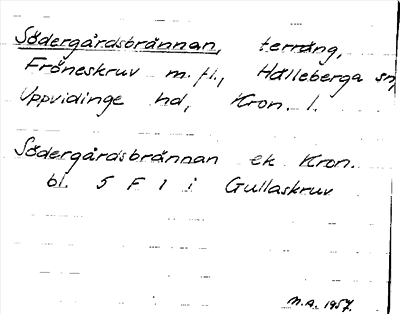 Södergårdsbrännan, terräng,
Fröneskruv m.fl., Hälleberga sn,
Uppvidinge hd, Kron. l.
Södergårdsbrännan ek Kron.
bl. 5 F 1 i Gullaskruv
M.A. 1957.